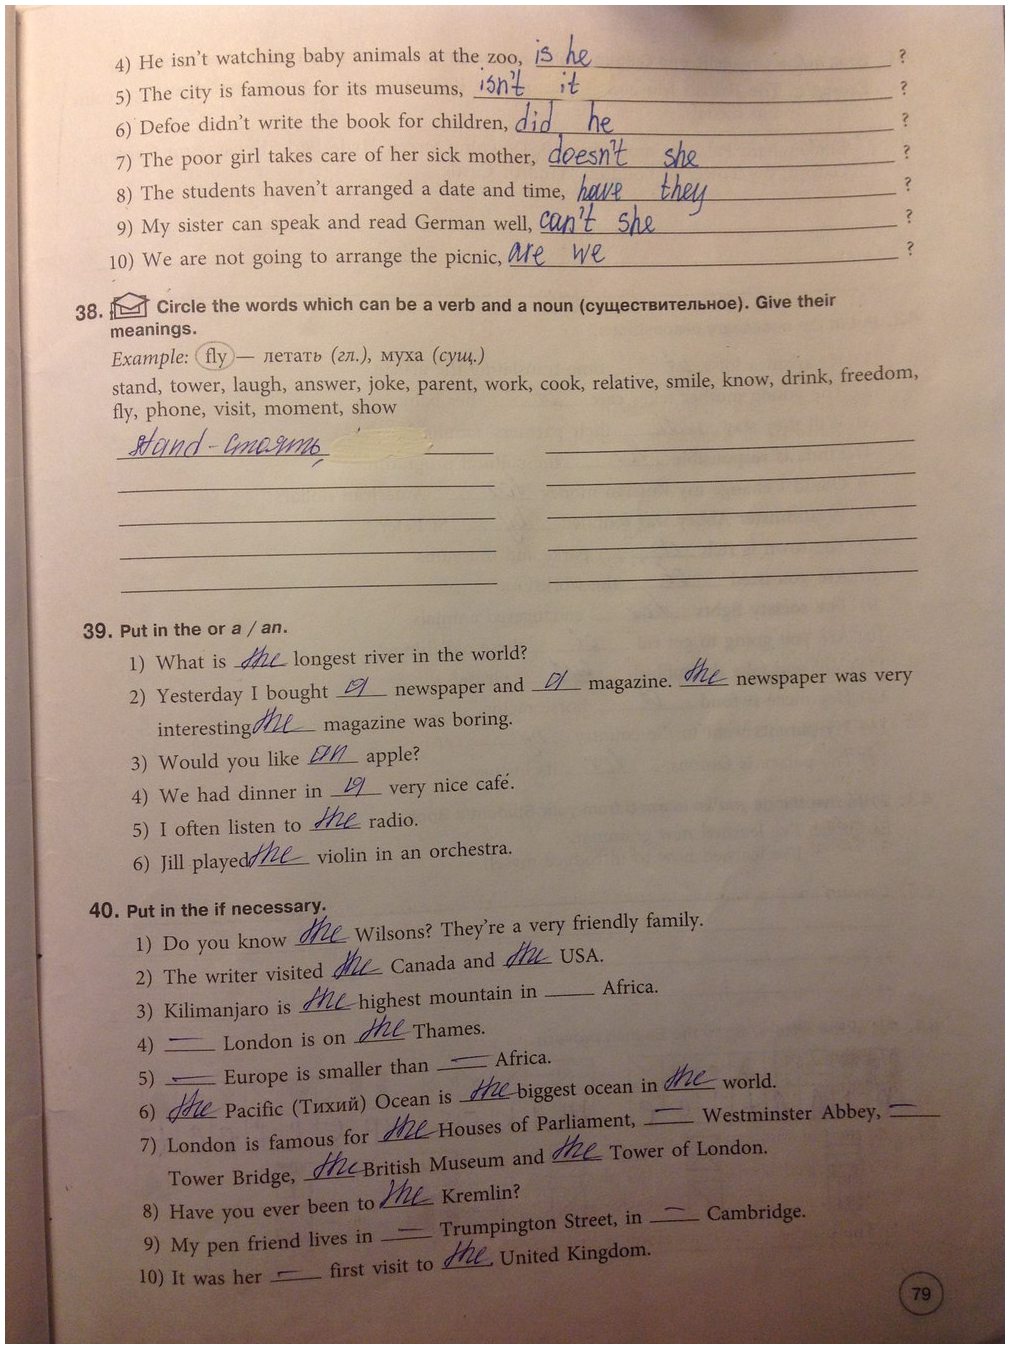 4) He isn't watching baby animals at the zoo, is he ?
5) The city is famous for its museums, isn't it ?
6) Defoe didn't write the book for children, did he ?
7) The poor girl takes care of her sick mother, doesn't she ?
8) The students haven't arranged a date and time, have they ?
9) My sister can speak and read German well, can't she ?
10) We are not going to arrange the picnic, are we ?
38. Circle the words which can be a verb and a noun (существительное). Give their
meanings.
Example: fly — летать (гл.), муха (сущ.)
stand, tower, laugh, answer, joke, parent, work, cook, relative, smile, know, drink, freedom,
fly, phone, visit, moment, show
stand - стоять,
39. Put in the or a / an.
1) What is the longest river in the world?
2) Yesterday I bought a newspaper and a magazine. the newspaper was very
interesting the magazine was boring.
3) Would you like an apple?
4) We had dinner in a very nice café.
5) I often listen to the radio.
6) Jill played the violin in an orchestra.
40. Put in the if necessary.
1) Do you know the Wilsons? They're a very friendly family.
2) The writer visited the Canada and the USA.
3) Kilimanjaro is the highest mountain in ____ Africa.
4) — London is on the Thames.
5) — Europe is smaller than — Africa.
6) the Pacific (Тихий) Ocean is the biggest ocean in the world.
7) London is famous for the Houses of Parliament, — Westminster Abbey, —
Tower Bridge, the British Museum and the Tower of London.
8) Have you ever been to the Kremlin?
9) My pen friend lives in — Trumpington Street, in — Cambridge.
10) It was her — first visit to the United Kingdom.
79